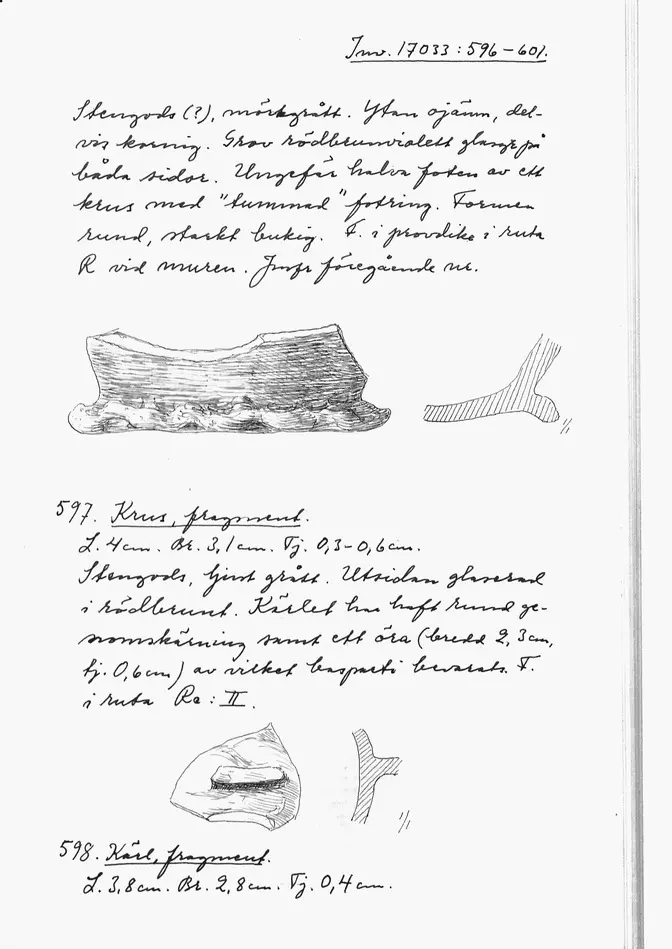 Inv. 17033 : 596 – 601.
Stengods (?), mörkgrått. Ytan ojämn, del-
vis kornig. Grov rödbrunviolett glasyr på
båda sidor. Ungefär halva foten av ett
krus med "tummad" fotring. Formen
rund, starkt bukig. F. i provdike i ruta
R vid muren. Jmfr föregående nr.
1/1
597. Krus, fragment.
L. 4 cm. Br. 3,1 cm. Tj. 0,3–0,6 cm.
Stengods, ljust grått. Utsidan glaserad
i rödbrunt. Kärlet har haft rund ge-
nomskärning samt ett öra (bredd 2,3 cm,
tj. 0,6 cm) av vilket basparti bevarats. F.
i ruta Ra : II.
1/1
598. Kärl, fragment.
L. 3,8 cm. Br. 2,8 cm. Tj. 0,4 cm.